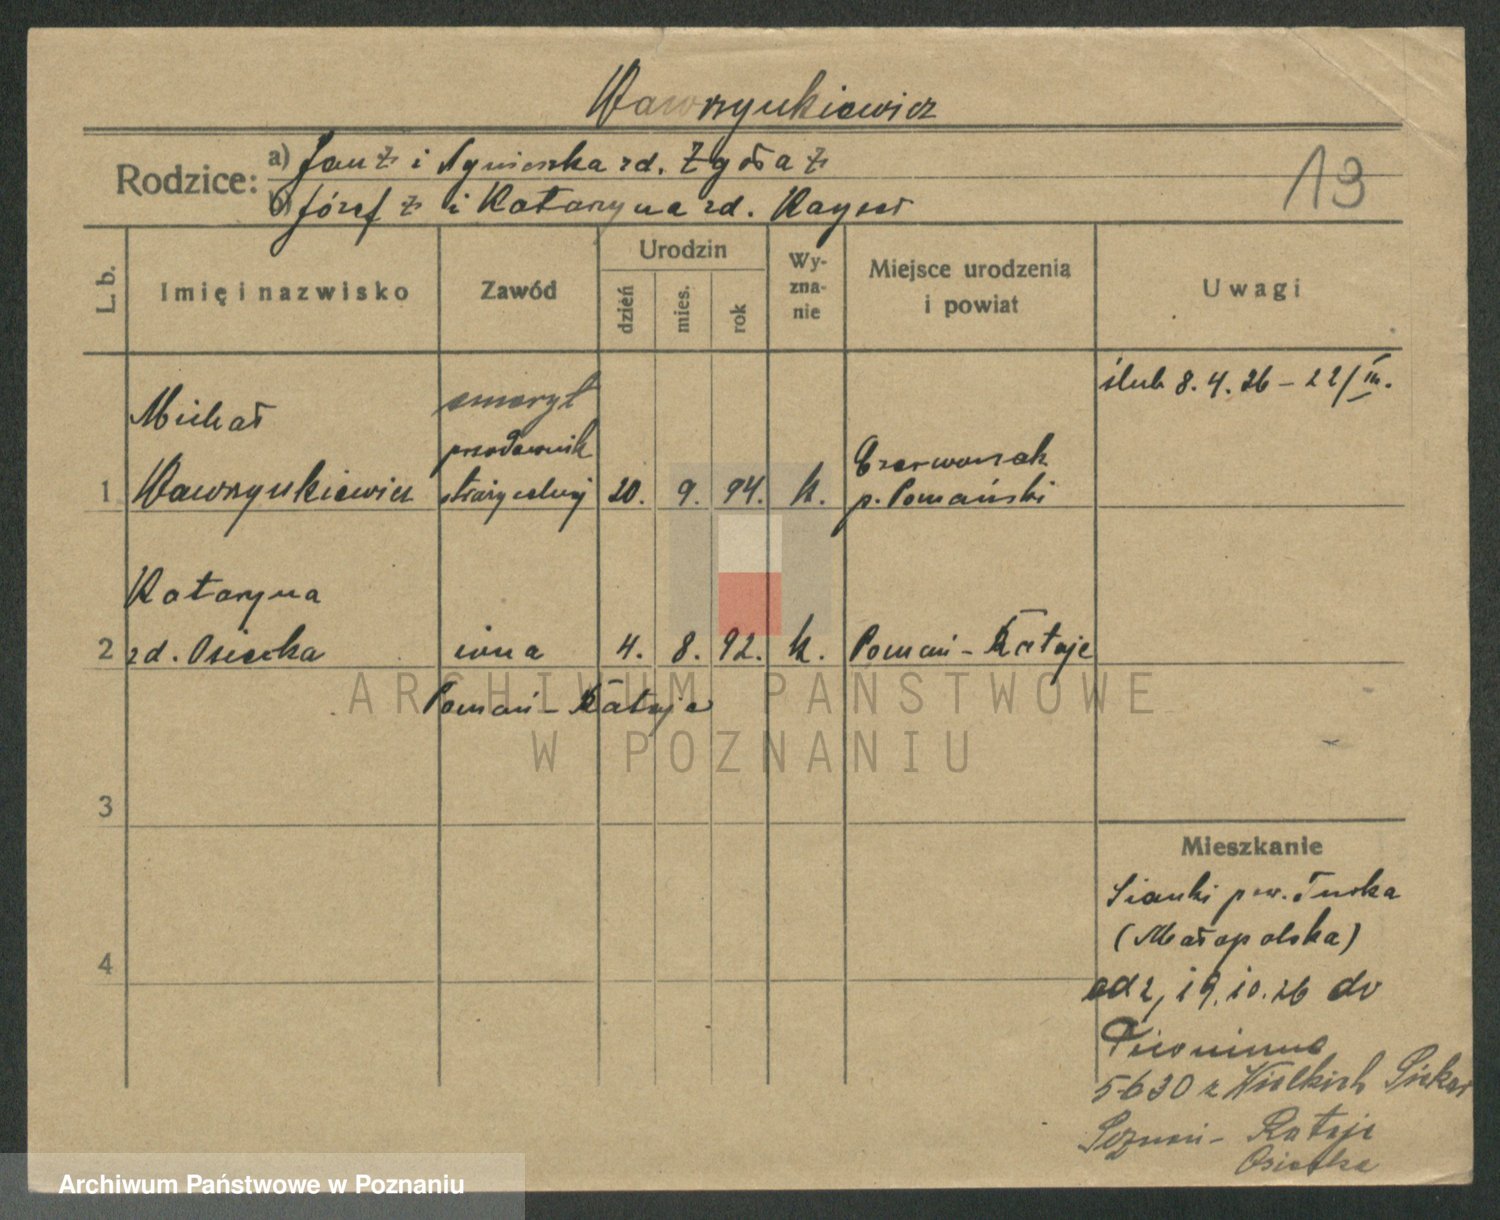 Wawrzynkiewicz
Rodzice:
a) Jan ż i Agnieszka zd. Zgoła ż
b) Józef ż i Katarzyna zd. Kayser
13
L. b.
Imię i nazwisko
Zawód
Urodzin
dzień
mies.
rok
Wy-
zna-
nie
Miejsce urodzenia
i powiat
Uwagi
ślub 8.4.26 – 22/III.
1
Michał
Wawrzynkiewicz
emeryt
przodownik
straży celnej
20. 9. 94. k.
Czerwonak
p. Poznański
2
Katarzyna
zd. Osiecka
żona
4. 8. 92. k.
Poznań – Rataje
Poznań – Rataje
3
4
Mieszkanie
Sianki pow. Turka
(Małopolska)
19.10.26 do
5630 z Wielkich
Poznań – Rataje
Osiecka
ARCHIWUM PAŃSTWOWE
W POZNANIU
Archiwum Państwowe w Poznaniu